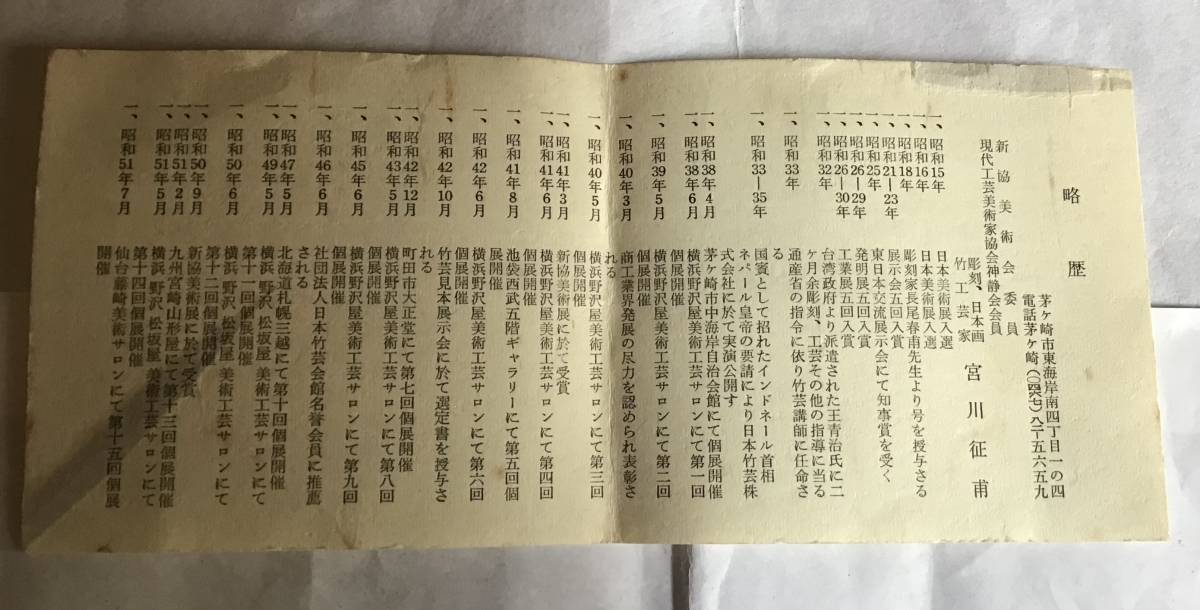 略歴
茅ケ崎市東海岸南四丁目一の四
電話茅ケ崎(〇四六七)八二-五六五九
新協美術会委員
現代工芸美術家協会神静会会員
彫刻、日本画
竹工芸家
宮川征甫
一、昭和15年 日本美術展入選
一、昭和16年 日本美術展入選
一、昭和18年 彫刻家長尾春甫先生より号を授与さる
一、昭和21―23年 展示会五回入賞
一、昭和25年 東日本交流展示会にて知事賞を受く
一、昭和26―29年 発明展五回入賞
一、昭和26―30年 工業展五回入賞
一、昭和32年 台湾政府より派遣された王青治氏に二
ケ月余彫刻、工芸その他の指導に当る
一、昭和33年 通産省の指令に依り竹芸講師に任命さ
る
一、昭和33―35年 国賓として招れたインドネール首相
ネパール皇帝の要請により日本竹芸株
式会社に於て実演公開す
一、昭和38年4月 茅ケ崎市中海岸自治会館にて個展開催
一、昭和38年6月 横浜野沢屋美術工芸サロンにて第一回
個展開催
一、昭和39年5月 横浜野沢屋美術工芸サロンにて第二回
個展開催
一、昭和40年3月 商工業界発展の尽力を認められ表彰さ
れる
一、昭和40年5月 横浜野沢屋美術工芸サロンにて第三回
個展開催
一、昭和41年3月 新協美術展に於て受賞
一、昭和41年6月 横浜野沢屋美術工芸サロンにて第四回
個展開催
一、昭和41年8月 池袋西武五階ギャラリーにて第五回個
展開催
一、昭和42年6月 横浜野沢屋美術工芸サロンにて第六回
個展開催
一、昭和42年10月 竹芸見本展示会に於て選定書を授与さ
れる
一、昭和42年12月 町田市大正堂にて第七回個展開催
一、昭和43年5月 横浜野沢屋美術工芸サロンにて第八回
個展開催
一、昭和45年6月 横浜野沢屋美術工芸サロンにて第九回
個展開催
一、昭和46年6月 社団法人日本竹芸会館名誉会員に推薦
される
一、昭和47年5月 北海道札幌三越にて第十回個展開催
一、昭和49年5月 横浜 野沢 松坂屋 美術工芸サロンにて
第十一回個展開催
一、昭和50年6月 横浜 野沢 松坂屋 美術工芸サロンにて
第十二回個展開催
一、昭和50年9月 新協美術展に於て受賞
一、昭和51年2月 九州宮崎山形屋にて第十三回個展開催
一、昭和51年5月 横浜 野沢 松坂屋 美術工芸サロンにて
第十四回個展開催
一、昭和51年7月 仙台藤崎美術サロンにて第十五回個展
開催